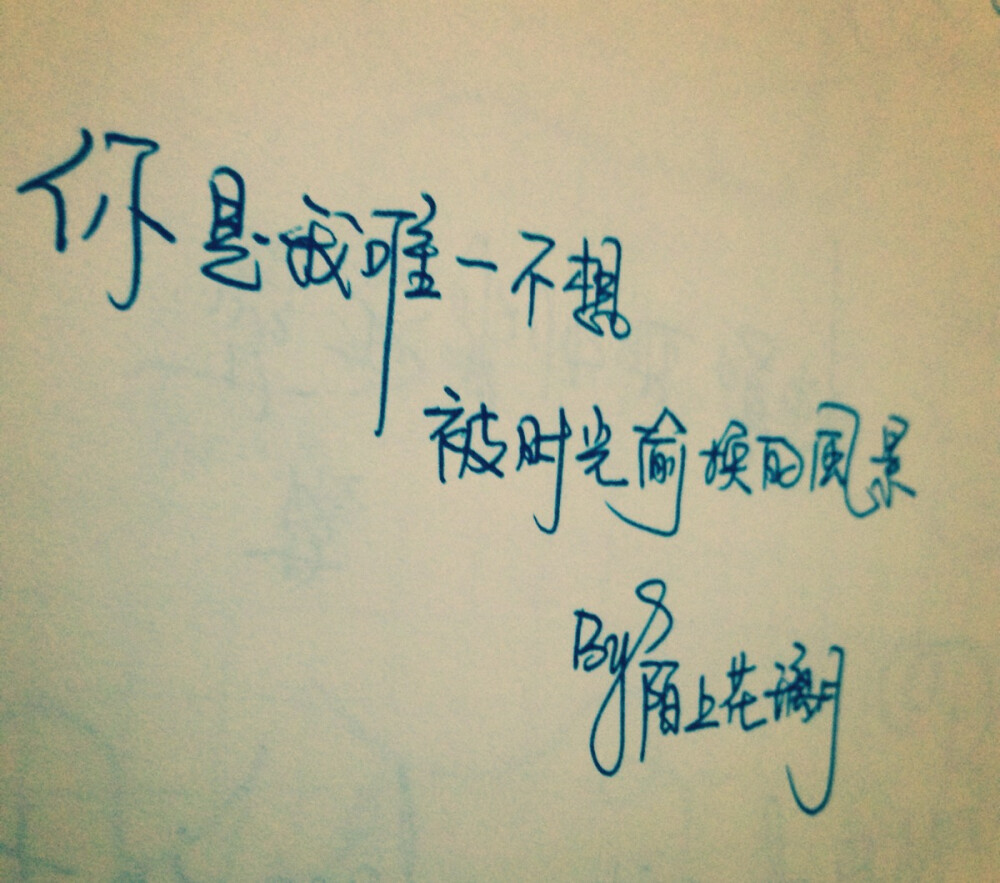 你是我唯一不想
被时光偷换的风景
By 陌上花漓月